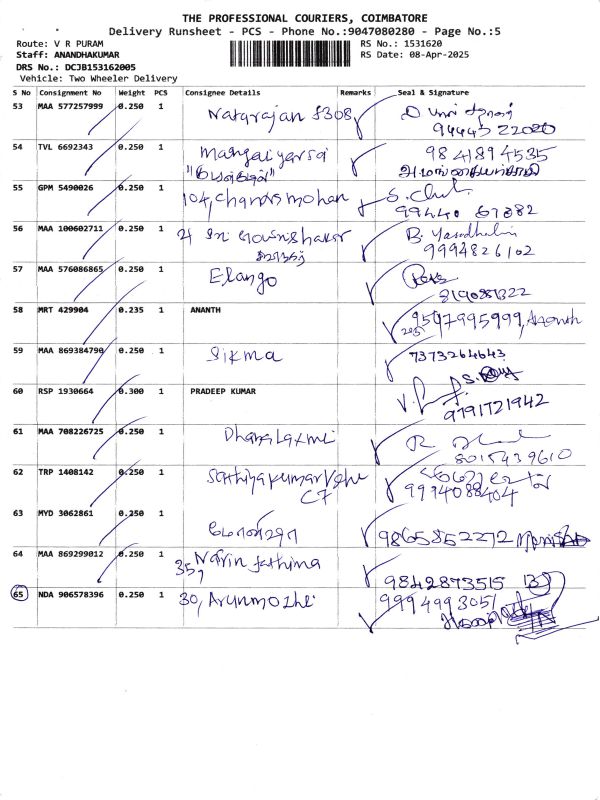 THE PROFESSIONAL COURIERS, COIMBATORE
Delivery Runsheet - PCS - Phone No.:9047080280 - Page No.:5
Route: V R PURAM
RS No.: 1531620
Staff: ANANDHAKUMAR
RS Date: 08-Apr-2025
DRS No.: DCJB153162005
Vehicle: Two Wheeler Delivery
S No Consignment No Weight PCS Consignee Details Remarks Seal & Signature
53 MAA 577257999 0.250 1 Natarajan S308
94443 22020
54 TVL 6692343 0.250 1 Mangaiyarsai 9841894535
55 GPM 5490026 0.250 1 104, Chandramohan
99440 67382
56 MAA 100602711 0.250 1 B. Yasodha
9994826102
57 MAA 576086865 0.250 1 Elango
58 MRT 429904 0.235 1 ANANTH 9597995999, Ananth
59 MAA 869384790 0.250 1 Sikma 7373264643
60 RSP 1930664 0.300 1 PRADEEP KUMAR
9791721942
61 MAA 708226725 0.250 1 Dhanalaxmi
8015439610
62 TRP 1408142 0.250 1 Sathiyakumar
C7 9994088404
63 MYD 3062861 0.250 1 9865852272
64 MAA 869299012 0.250 1 357 Navin fathima
9842873515
65 NDA 906578396 0.250 1 30, Arunmozhi 9994993051